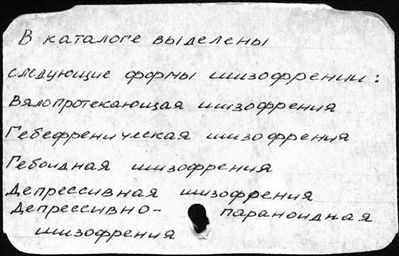 В каталоге выделены
следующие формы шизофрении:
Вялопротекающая шизофрения
Гебефреническая шизофрения
Гебоидная шизофрения
Депрессивная шизофрения
Депрессивно- параноидная
шизофрения